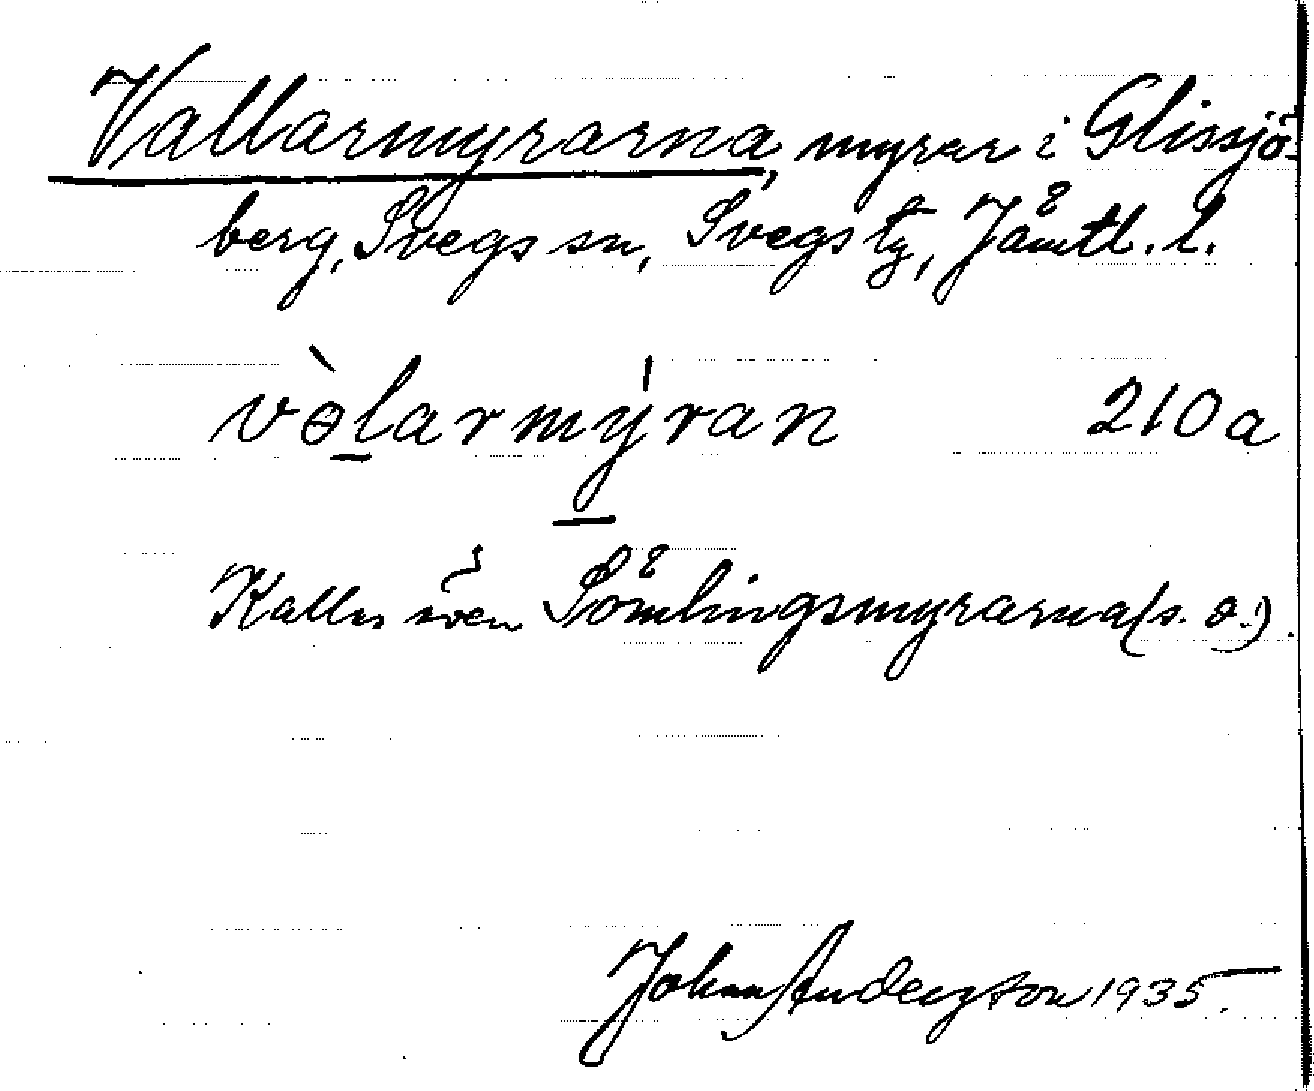 Vallarmyrarna, myrar i Glissjö-
berg, Svegs sn, Svegs tg, Jämtl. l.
vɵ̀larmýran 210a
Kallas även Sömlingsmyrarna (s. o.).
Johan Anderzson 1935.